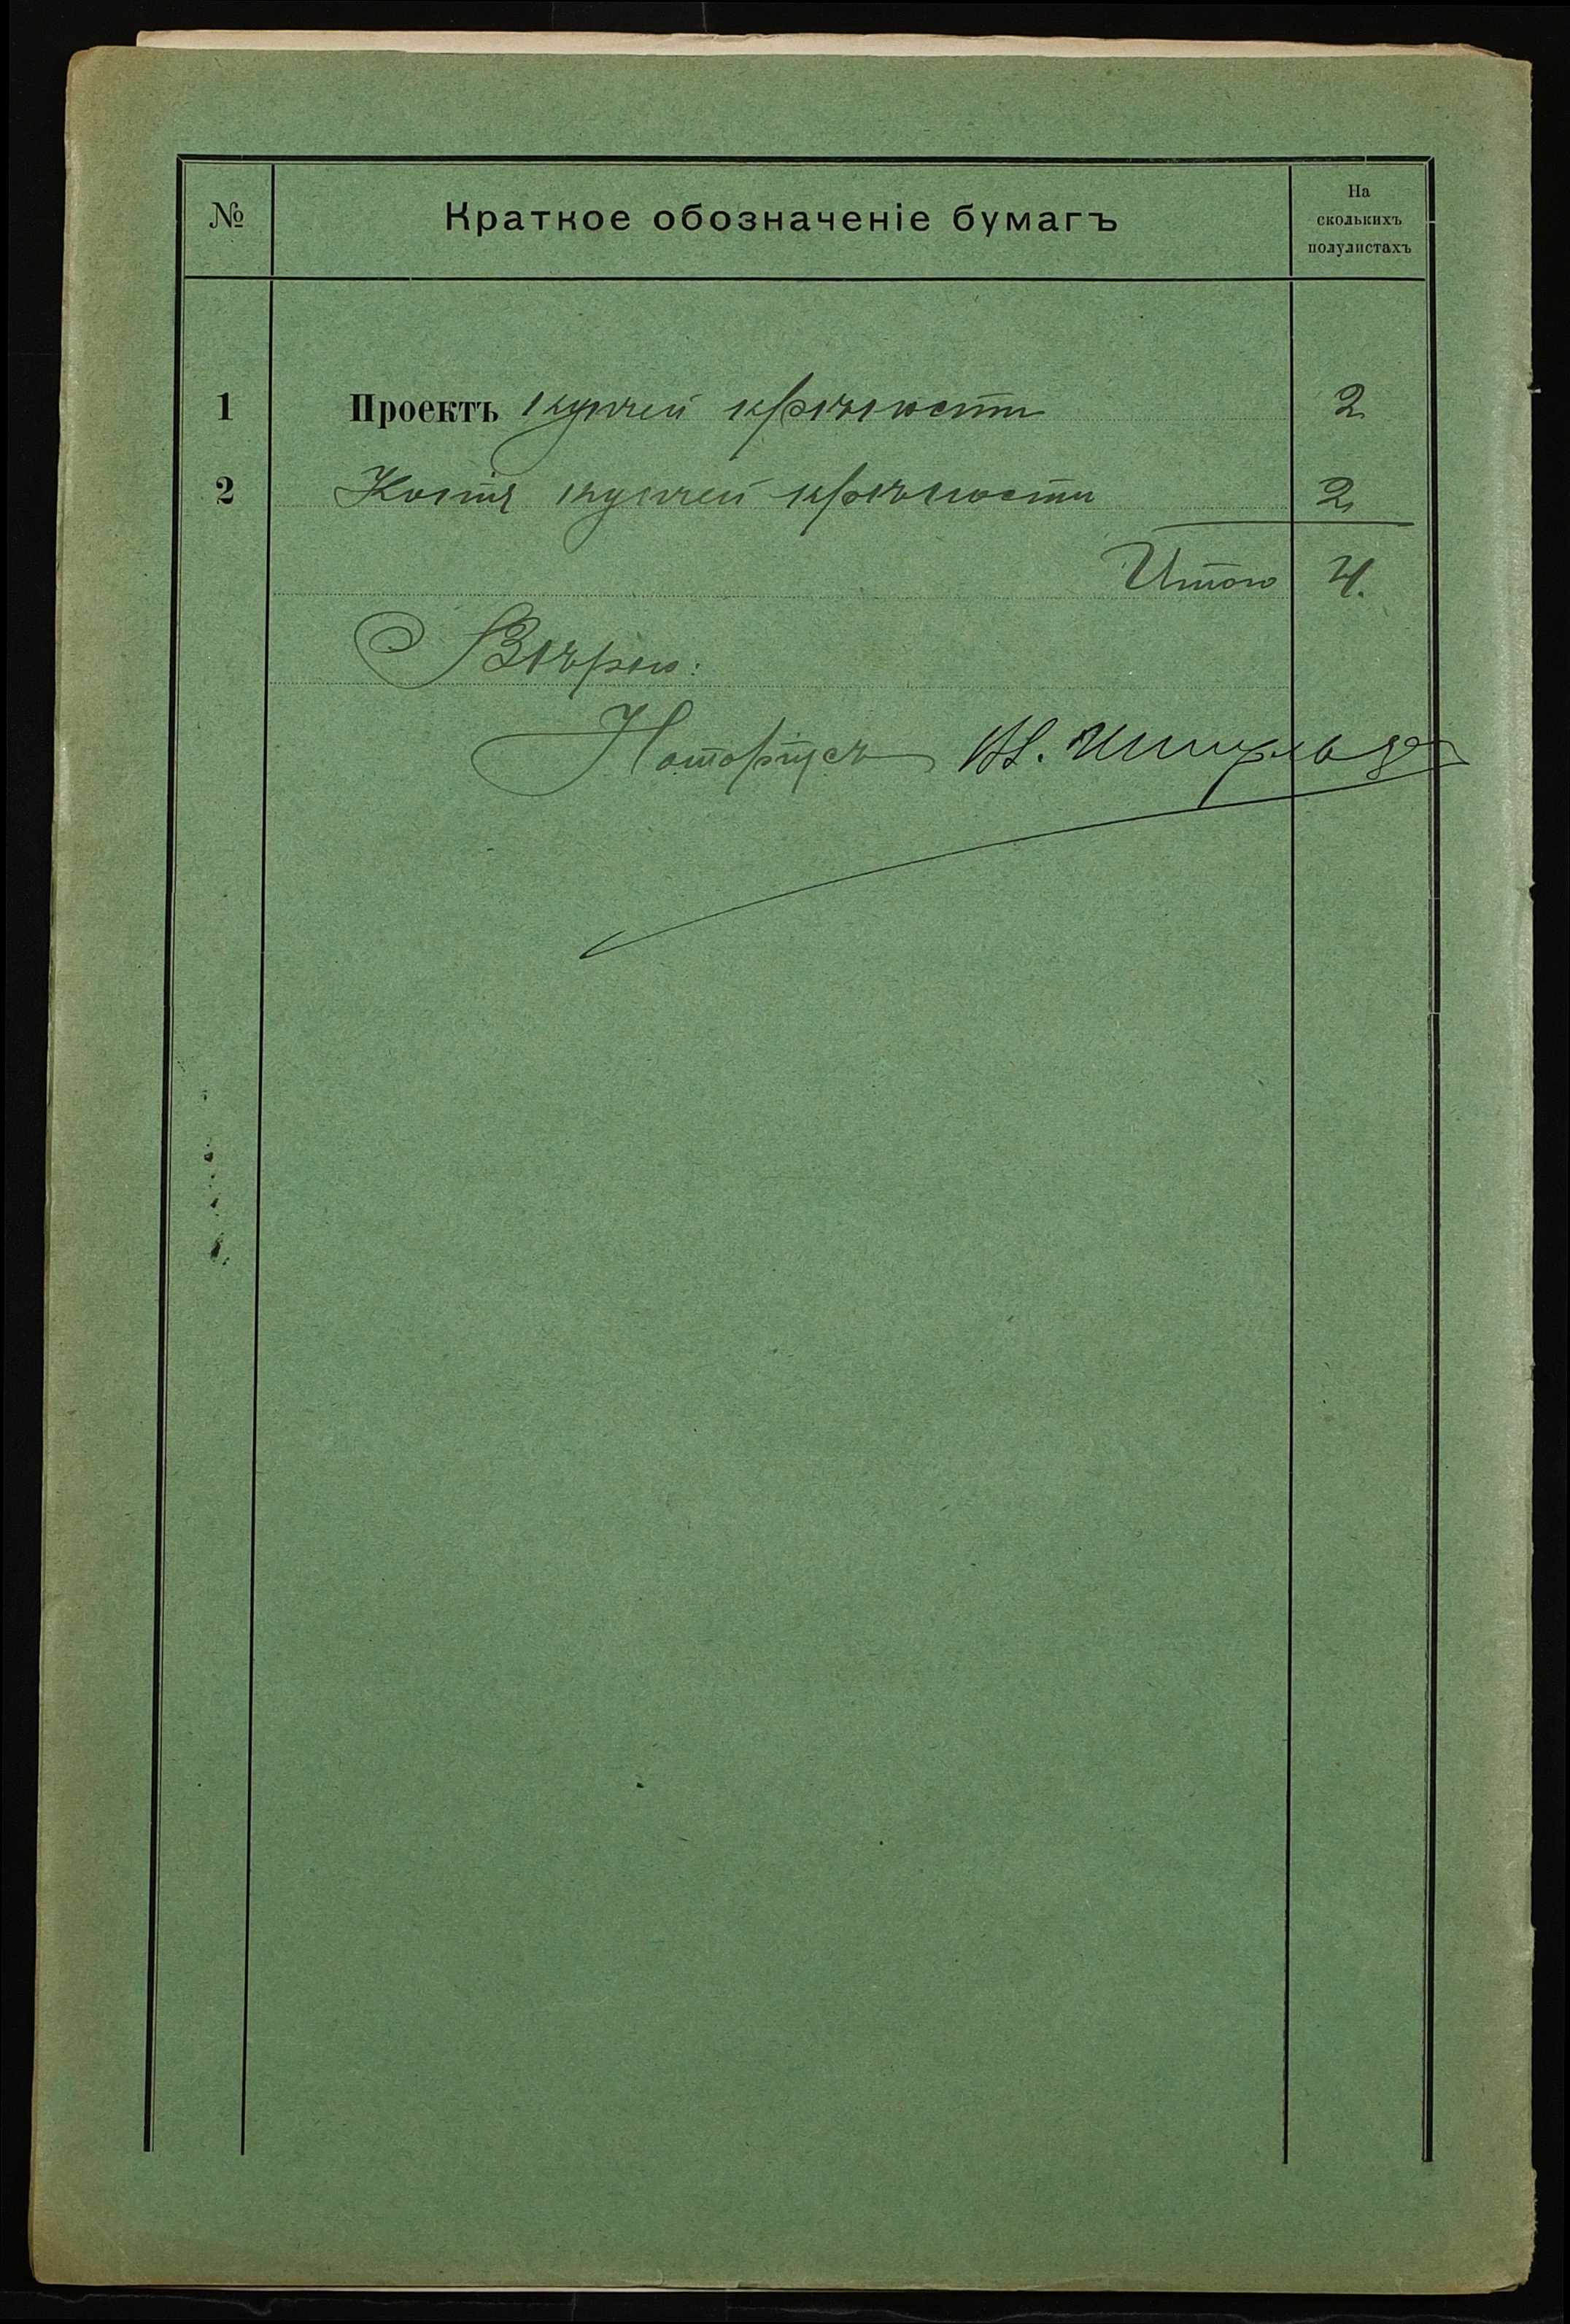 № Краткое обозначеніе бумагъ На
сколькихъ
полулистахъ
1 Проектъ купчей крѣпости 2
2 Копія купчей крѣпости 2
Итого 4.
Вѣрно:
Нотаріусъ